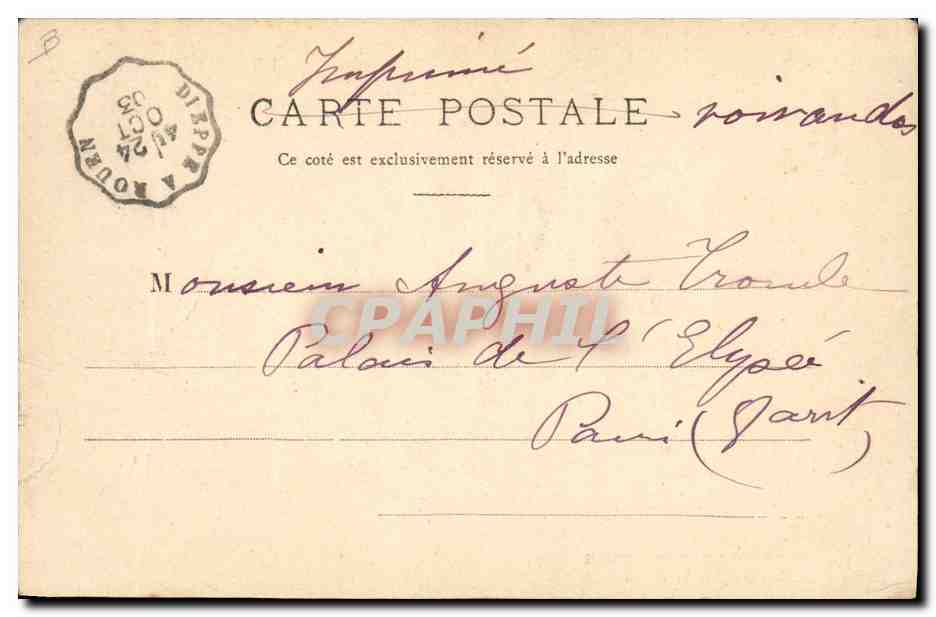 Imprimé
CARTE POSTALE voir au dos
Ce coté est exclusivement réservé à l'adresse
DIEPPE A ROUEN
24
OCT
03
Monsieur Auguste
CPAPHIL
Palais de l'Elysée
Paris (8 arrt)